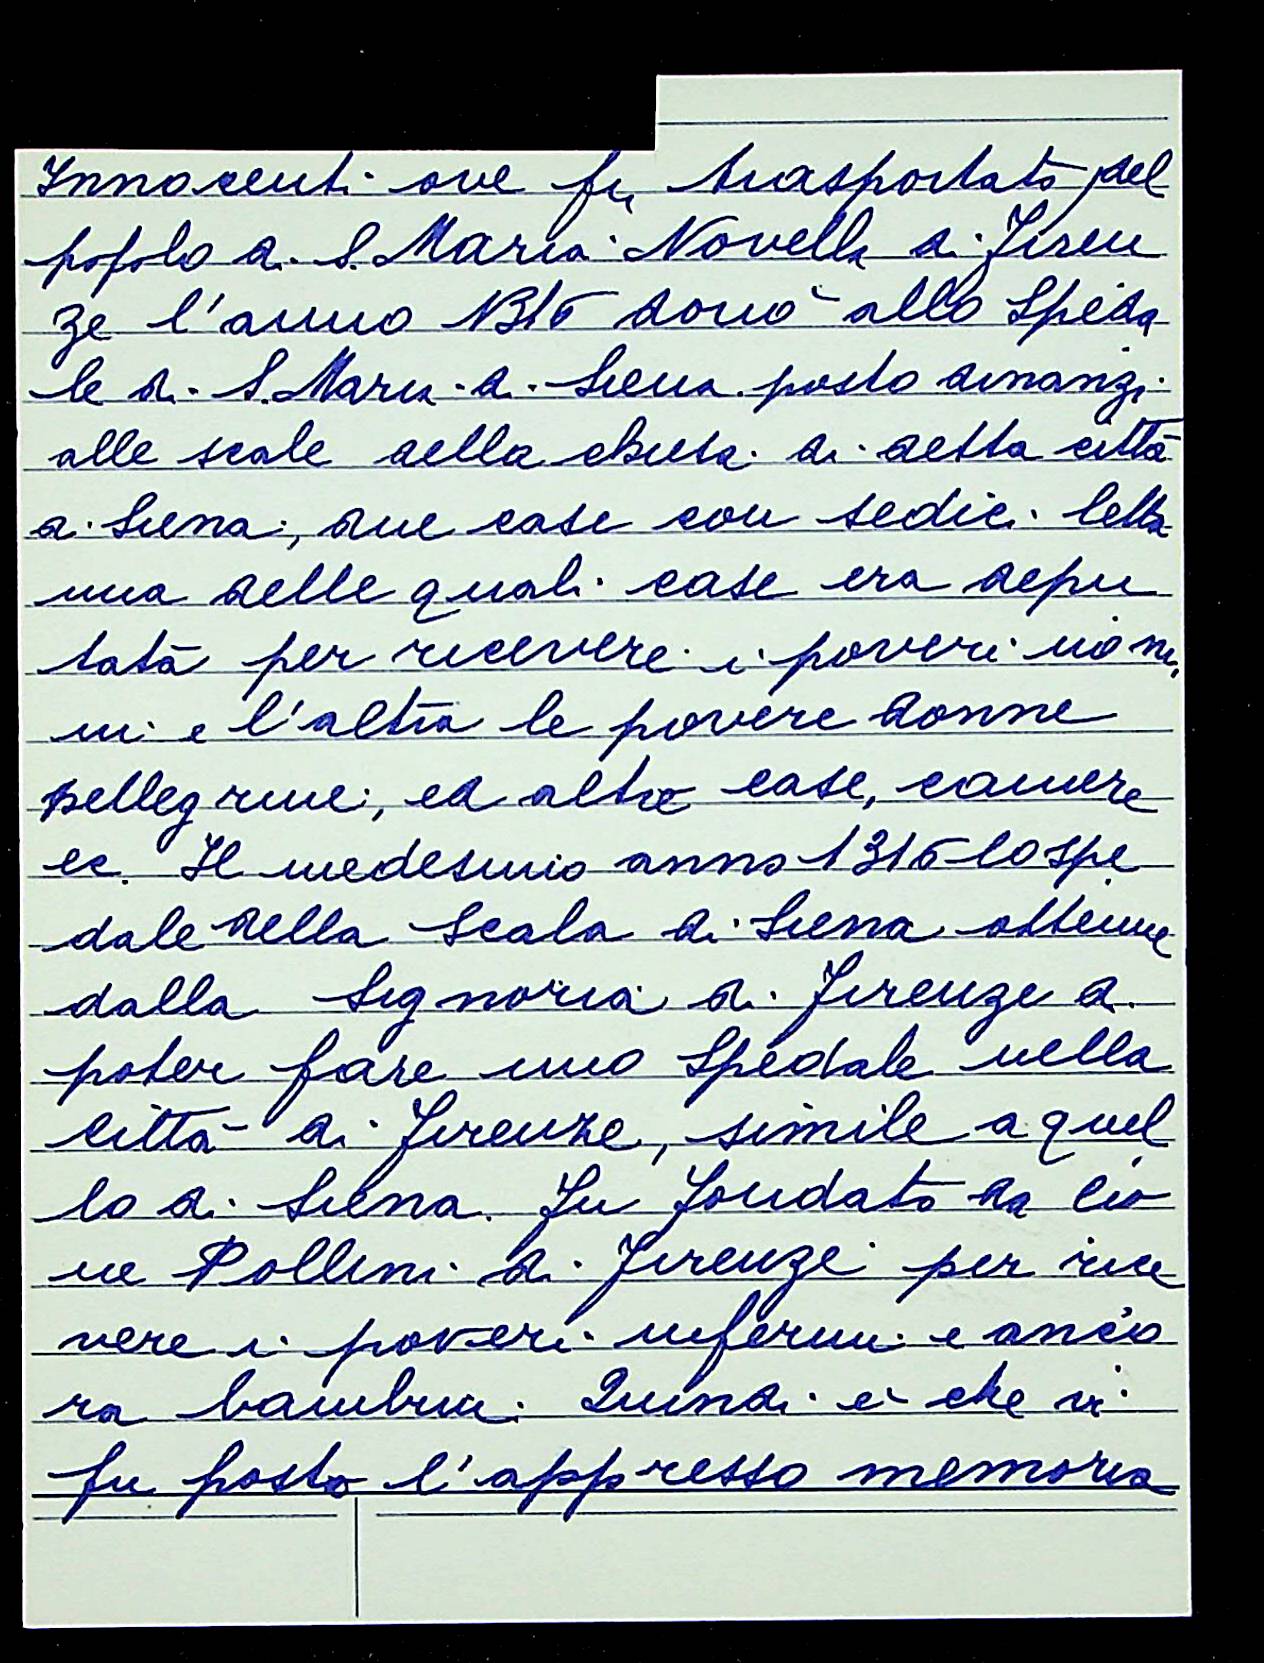 Innocenti ove fu trasportato, del
popolo di S. Maria Novella di Firen
ze l'anno 1316 donò allo Speda
le di S. Maria di Siena posto dinanzi
alle scale della chiesa di detta città
di Siena, due case con sedici letta
una delle quali case era depu
tata per ricevere i poveri uomi
ni e l'altra le povere donne
pellegrine, ed altre case, camere
ec. Il medesimo anno 1316 lo spe
dale della Scala di Siena ottenne
dalla Signoria di Firenze di
poter fare uno Spedale nella
città di Firenze, simile a quel
lo di Siena. Fu fondato da Cio
ne Pollini di Firenze per rice
vere i poveri infermi e anco
ra bambini. Quindi è che vi
fu posto l'appresso memoria